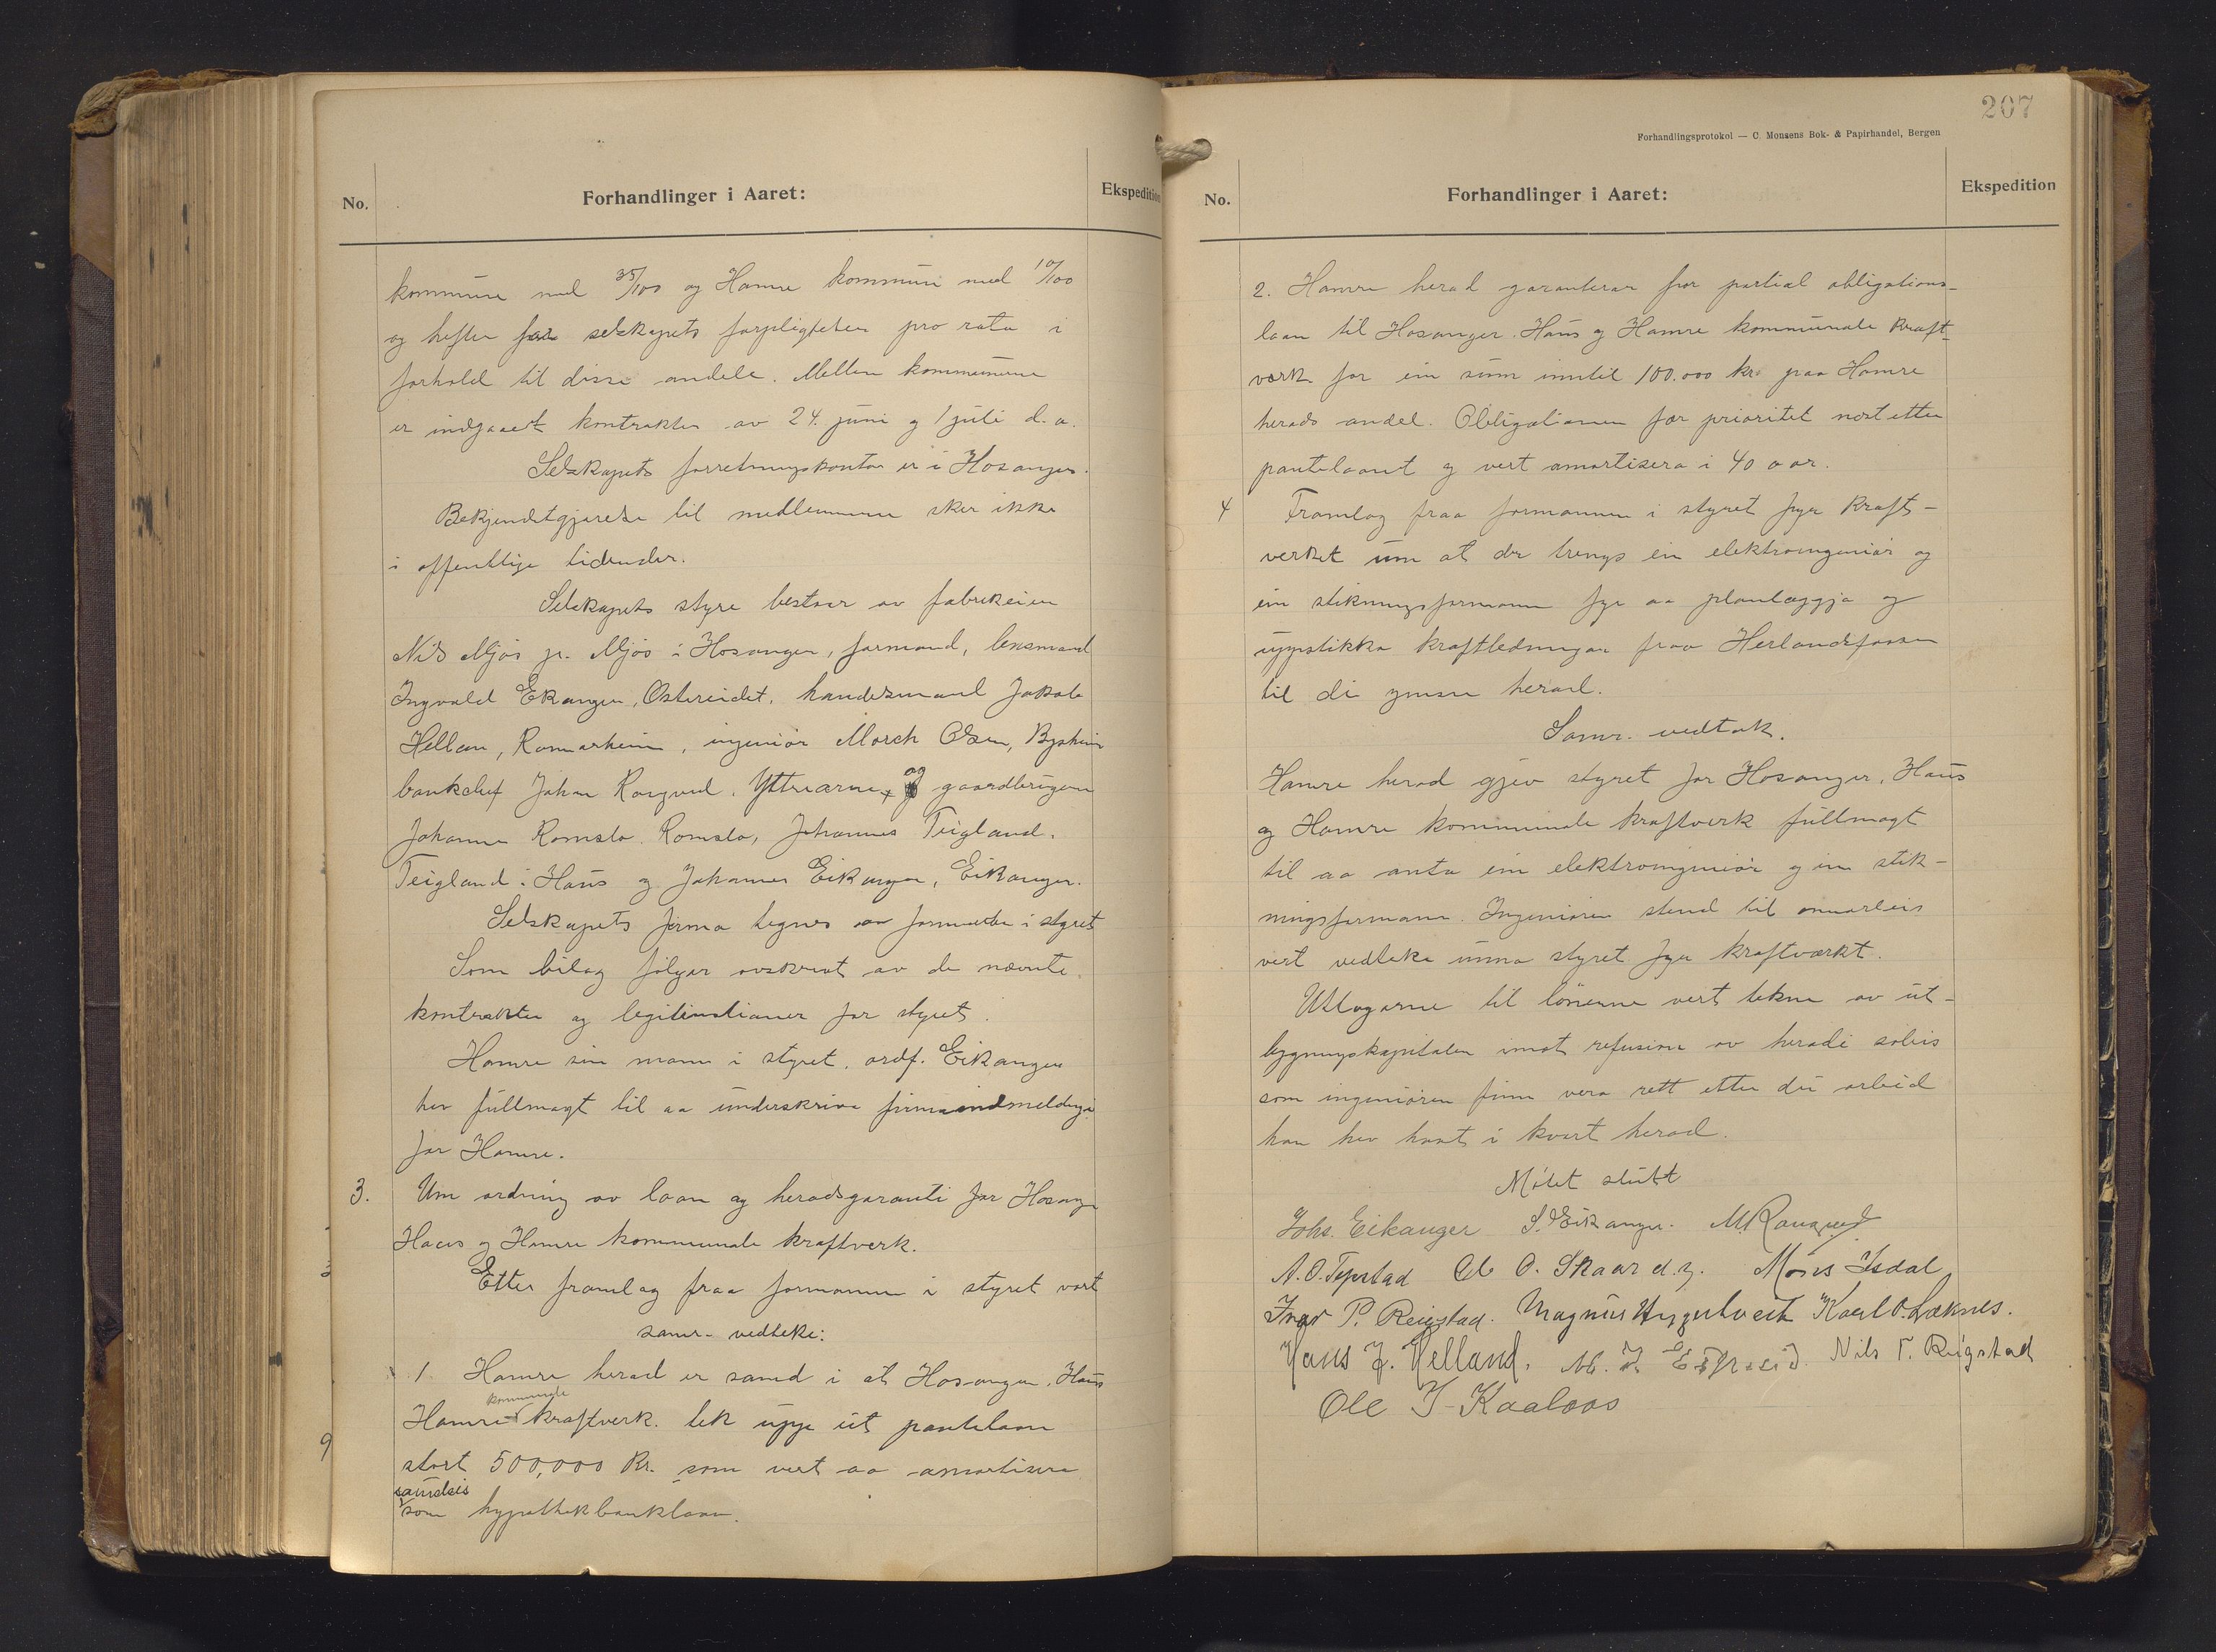 No.
Forhandlinger i Aaret:
Ekspedition
kommune med 35/100 og Hamre kommune med 10/100
og hefter for selskapets forpligtelser pro rata i
forhold til disse andele. Mellem kommunerne
er indgaaet kontrakter av 24. juni og 1 juli d. a.
Selskapets forretningskontor er i Hosanger.
Bekjendtgjørelse til medlemmerne sker ikke
i offentlige tidender.
Selskapets styre bestaar av fabrikeier
Nils Mjøs jr. Mjøs i Hosanger, formand, lensmand
Ingvald Ekanger, Ostereidet, handelsmand Jakob
Helland, Romarheim, ingeniør Morch Olsen,
bankchef Johan Rongved, Ytrearne, og gaardbruger
Johannes Romslo, Romslo, Johannes Teigland,
Teigland i Haus og Johannes Eikanger, Eikanger.
Selskapets firma tegnes av formanden i styret
Som bilag følger avskrivt av de nævnte
kontrakter og legitimationer for styret.
Hamre sin mann i styret, ordf. Eikanger
hev fullmagt til aa underskriva firmaindmeldingi
for Hamre.
3. Um ordning av laan og heradsgaranti for Hosanger
Haus og Hamre kommunale kraftverk.
Etter framlag fraa formannen i styret vart
samr. vedteke:
1. Hamre herad er samd i at Hosanger, Haus
kommunale
Hamre kraftverk. tek uppe eit pantelaan
stort 500,000 Kr. som vert aa amortisera
saaleis
som hypothekbanklaan.
207
Forhandlingsprotokol — C. Monsens Bok- & Papirhandel, Bergen
No.
Forhandlinger i Aaret:
Ekspedition
2. Hamre herad garanterar for partial obligations-
laan til Hosanger, Haus og Hamre kommunale kraft-
værk for ein sum inntil 100.000 kr. paa Hamre
herads andel. Obligationen fær prioritet næst etter
pantelaanet og vert amortisera i 40 aar.
4 Framlag fraa formannen i styret fyr kraft-
verket um at der trengs ein elektroingeniør og
ein stikningsformann fyr aa planlæggja og
uppstikka kraftledningar fraa Herlandsfossen
til dei ymsa herad.
Samr. vedtak.
Hamre herad gjev styret for Hosanger, Haus
og Hamre kommunale kraftverk fullmagt
til aa anta ein elektroingeniør og ein stik-
ningsformann. Ingeniøren
vert vedteke styret fyr kraftværkt.
Utlogorne til lønerne vert tekne av ut-
bygningskapitalen imot refusion av heradi soleis
som ingeniøren finn vera rett etter dei arbeid
han hev havt i kvart herad.
Møtet slutt
Johs. Eikanger S. Eikanger. M Rongved
A. O. Tepstad O. Skaar d.y. Mons Isdal
Ivar P. Reigstad. Magnus Karl O. Løknes.
Hans J. Helland. Nils T. Reigstad
Ole J. Kaalaas